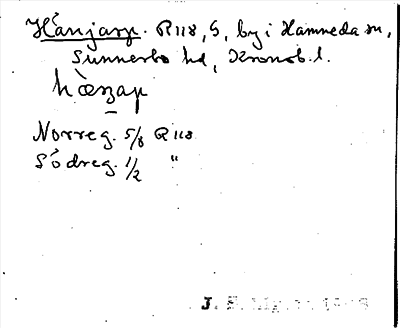 Hånjarp. R 118, S, by i Hamneda sn,
Sunnerbo hd, Kronob. l.
hæŋap
Norreg. 5/8 R 118
Södreg. 1/2 "
J.